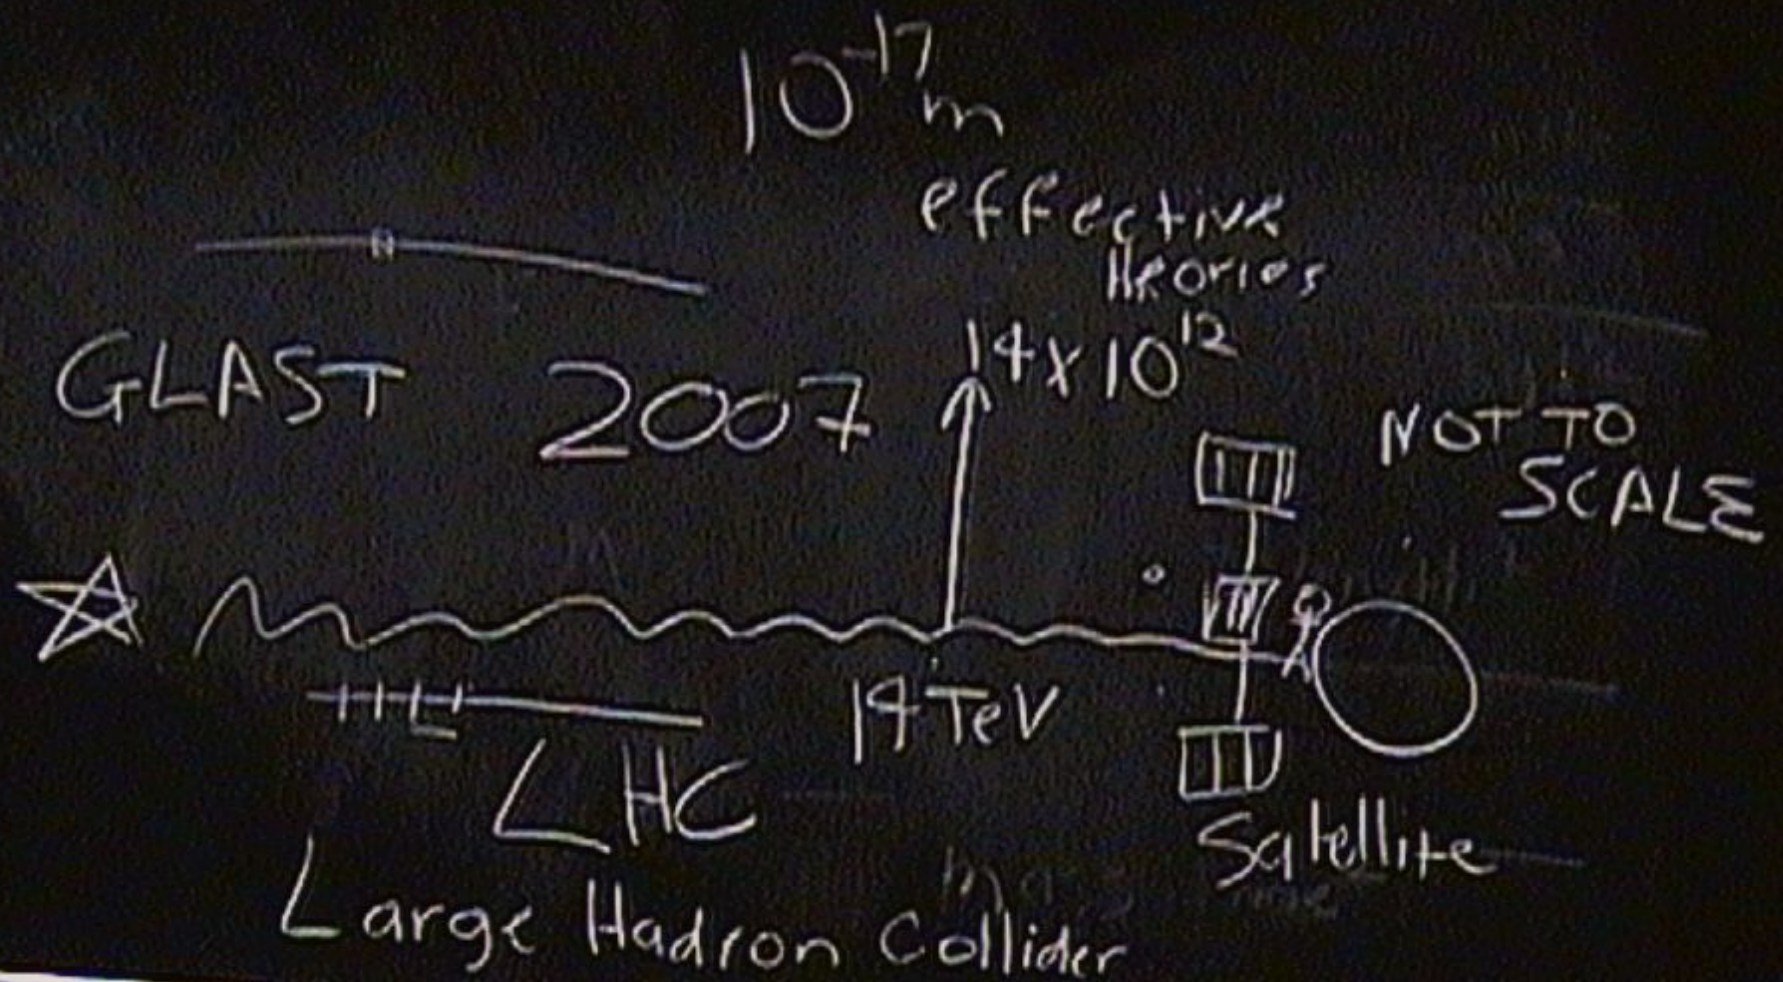 10⁻¹⁷ m
effective
theories
14 x 10¹²
GLAST 2007
NOT TO
SCALE
14 TeV
LHC
Satellite
Large Hadron Collider